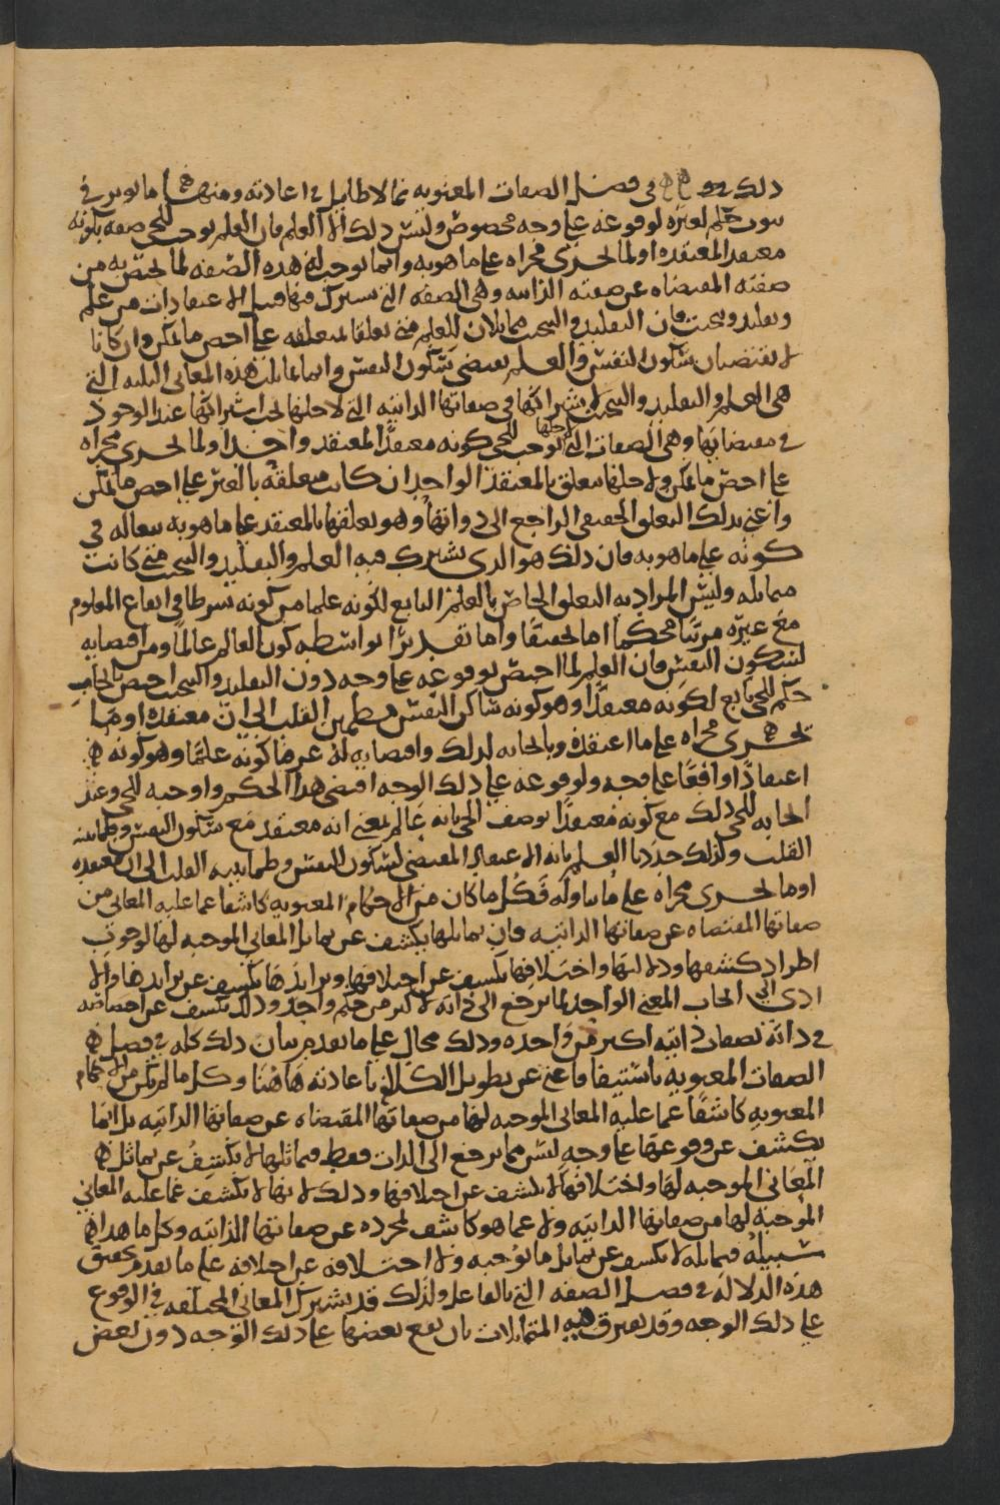 ذلك في فصل الصفات المعنوية مما لا طائل في اعادته ومنها ما يوثر في
ثبوت حكم لغيره لوقوعه على وجه مخصوص وليس ذلك الا العلم فان العلم يوجب للحي صفة بكونه
معتقدا لمعتقده او لما يجري مجراه على ما هو به وانما يوجب له هذه الصفة لما يختص به من
صفته المقتضاه عن صفته الذاتيه وهي الصفه التي يشترك فيها قبيل الاعتقادات من علم
وتقليد وتبخيت فان التقليد والتبخيت مماثلان للعلم متى تعلقا بمتعلقه على اخص ما يمكن وان كانا
لا يقتضيان سكون النفس والعلم يقتضي سكون النفس وانما تماثلت هذه المعاني الثلثه التي
هي العلم والتقليد والتبخيت لاشتراكها في صفاتها الذاتيه التي لاجلها يجب اشتراكها عند الوجود
في مقتضاتها وهي الصفات التي لاجلها توجب للحي كونه معتقدا لمعتقد واحد او لما يجري مجراه
على اخص ما يمكن ولاجلها تتعلق بالمعتقد الواحد ان كانت متعلقه بالغير على اخص ما يمكن
واعني بذلك التعلق الحقيقي الراجع الى ذواتها وهو تعلقها بالمعتقد على ما هو به تعاله في
كونه على ما هو به فان ذلك هو الذي يشترك فيه العلم والتقليد والتبخيت متى كانت
متماثله وليس المراد به التعلق الخاص بالعلم التابع لكونه علما من كونه شرطا في ايقاع المعلوم
مع غيره مرتبا محكما اما تحقيقا واما تقديرا بواسطه كون العالم عالما ومن اقتضايه
لسكون النفس فان العلم لما اختص بوقوعه على وجه دون التقليد والتبخيت اختص بايجاب
حكم للحي تابع لكونه معتقدا وهو كونه ساكن النفس مطمئن القلب الى ان معتقده او ما
يجري مجراه على ما اعتقده وبايجابه لذلك واقتضايه له عرفنا كونه علما وهو كونه
اعتقادا واقعا على وجه ولوقوعه على ذلك الوجه اقتضى هذا الحكم واوجبه للحي وعند
ايجابه للحي ذلك مع كونه معتقدا يوصف الحي بانه عالم بمعنى انه معتقد مع سكون النفس وطمانينه
القلب ولذلك حددنا العلم بانه الاعتقاد المقتضي لسكون النفس وطمانينه القلب الى ان معتقده
او ما يجري مجراه على ما تناوله فكل ما كان من الاحكام المعنويه كاشفا عما عليه المعاني من
صفاتها المقتضاه عن صفاتها الذاتيه فان تماثلها يكشف عن تماثل المعاني الموجبه لها لوجوب
اطراد كشفها ودلالتها واختلافها يكشف عن اختلافها وتزايدها يكشف عن تزايدها والا
ادى الى ايجاب المعنى الواحد لما يرجع الى ذاته لاكثر من حكم واحد وذلك يكشف عن اختصاصه
في ذاته بصفات ذاتيه اكثر من واحده وذلك محال على ما تقدم بيان ذلك كله في فصل
الصفات المعنويه باستيفا فاغنى عن تطويل الكلام باعادته هاهنا وكل ما لم يكن من الاحكام
المعنويه كاشفا عما عليه المعاني الموجبه لها من صفاتها المقتضاه عن صفاتها الذاتيه بل انما
يكشف عن وقوعها على وجه ليس مما يرجع الى الذات فقط فتماثلها لا يكشف عن تماثل
المعاني الموجبه لها واختلافها لا يكشف عن اختلافها وذلك لانها لا تكشف عما عليه المعاني
الموجبه لها من صفاتها الذاتيه ولا عما هو كاشف بمجرده عن صفاتها الذاتيه وكل ما هذا
سبيله فتماثله لا يكشف عن تماثل ما توجبه ولا اختلافه عن اختلافه على ما تقدم تحقيق
هذه الدلاله في فصل الصفه التي بالفاعل ولذلك قد يشترك المعاني المختلفه في الوقوع
على ذلك الوجه وقد يفترق فيه المتماثلات بان يقع بعضها على ذلك الوجه دون بعض